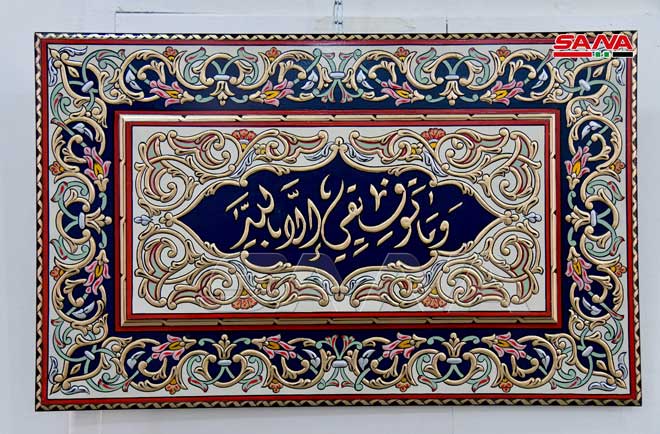 SANA
وَمَا تَوفِيقِي إِلَّا بِاللَّهِ
SANA